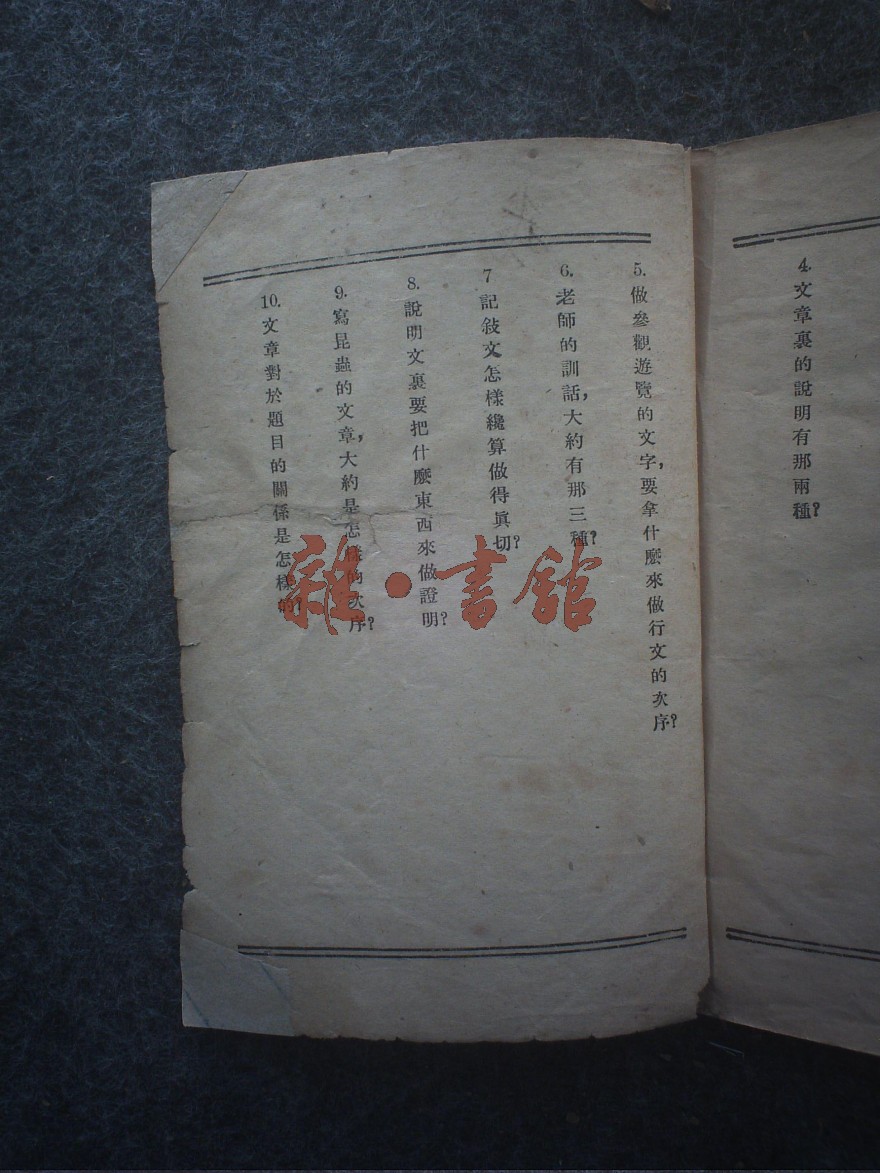 4. 文章裏的說明有那兩種?
5. 做參觀遊覽的文字,要拿什麽來做行文的次序?
6. 老師的訓話,大約有那三種?
7 記敍文怎樣纔算做得眞切?
8. 說明文裏要把什麽東西來做證明?
9. 寫昆蟲的文章,大約是怎樣的次序?
10. 文章對於題目的關係是怎樣的?
雜·書館